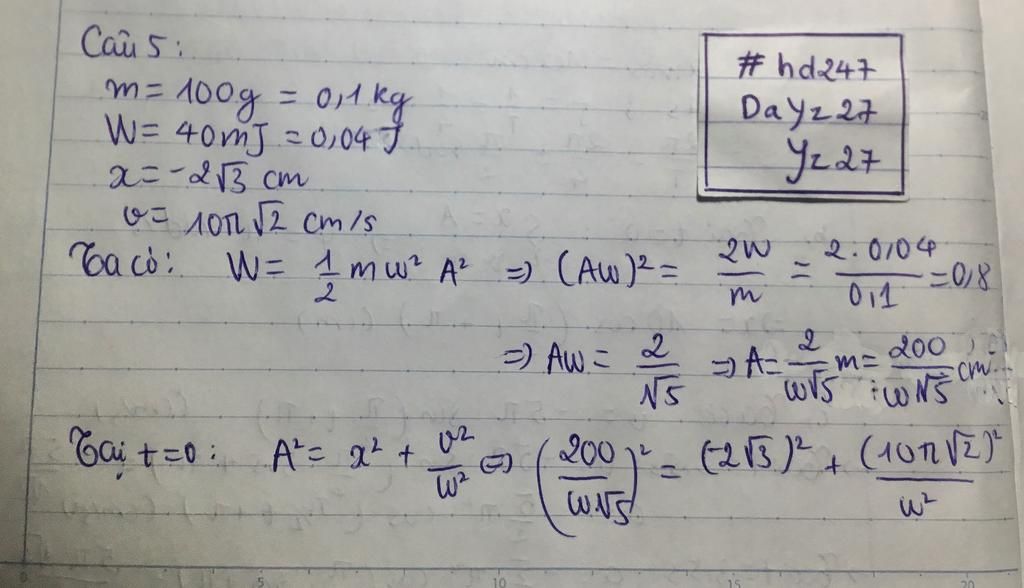 Câu 5:
m = 100g = 0,1 kg
W = 40mJ = 0,04 J
x = -2√3 cm
v = 10π√2 cm/s
# hd247
DaYz27
Yz27
Ta có: W = 1/2 mω² A² => (Aω)² = 2W/m = 2.0,04/0,1 = 0,8
=> Aω = 2/√5 => A = 2/ω√5 m = 200/ω√5 cm
Tại t=0: A² = x² + v²/ω² <=> (200/ω√5)² = (-2√3)² + (10π√2)²/ω²
5 10 15 20